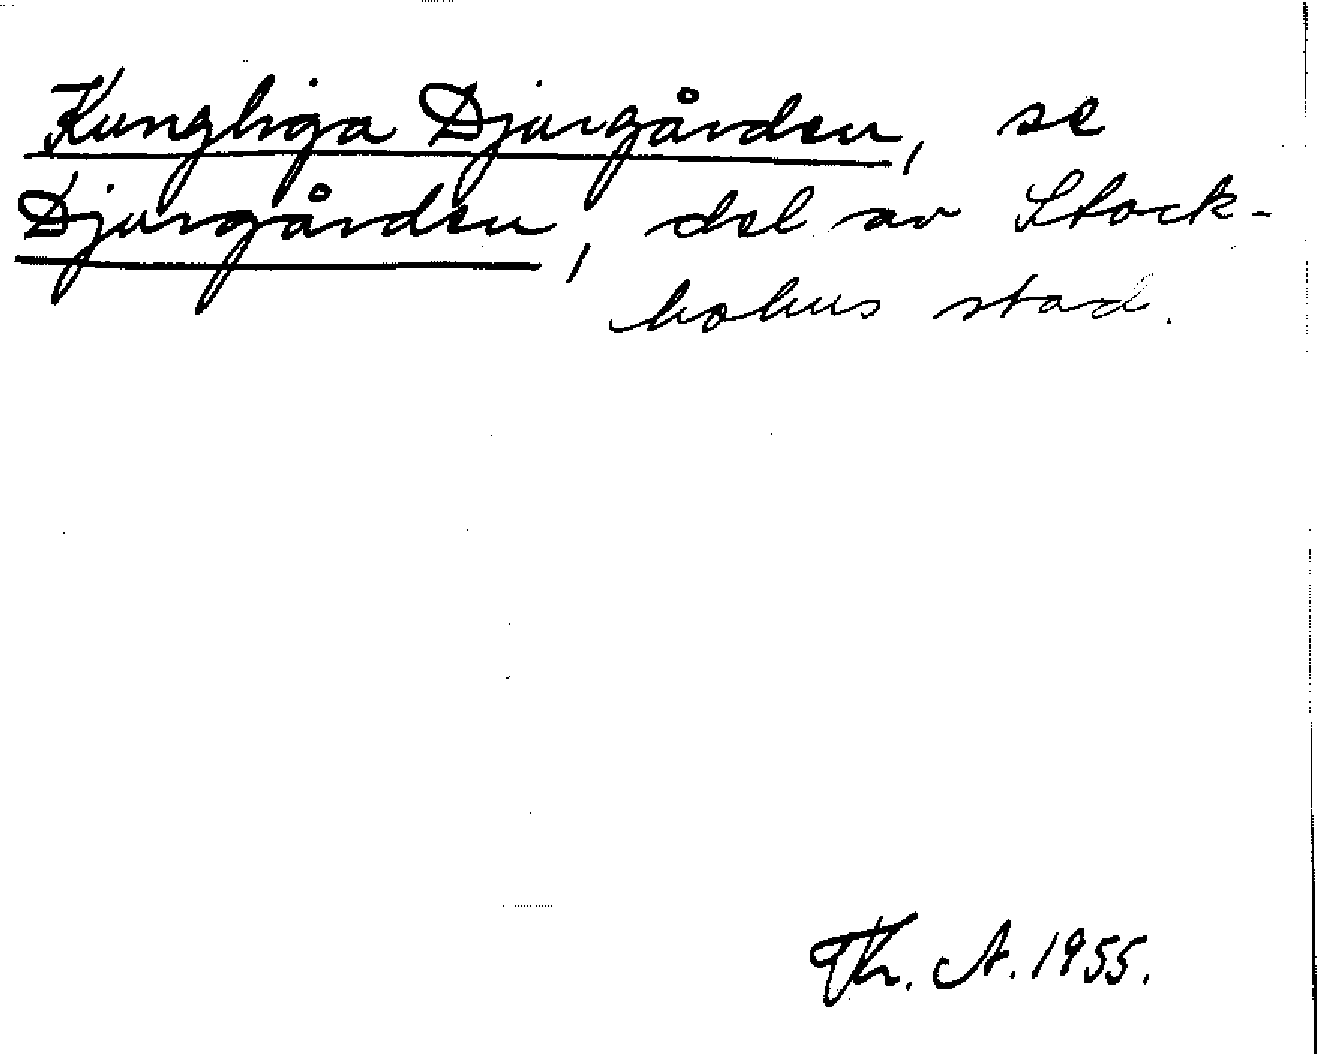 Kungliga Djurgården, se
Djurgården, del av Stock-
holms stad.
Th. A. 1955.